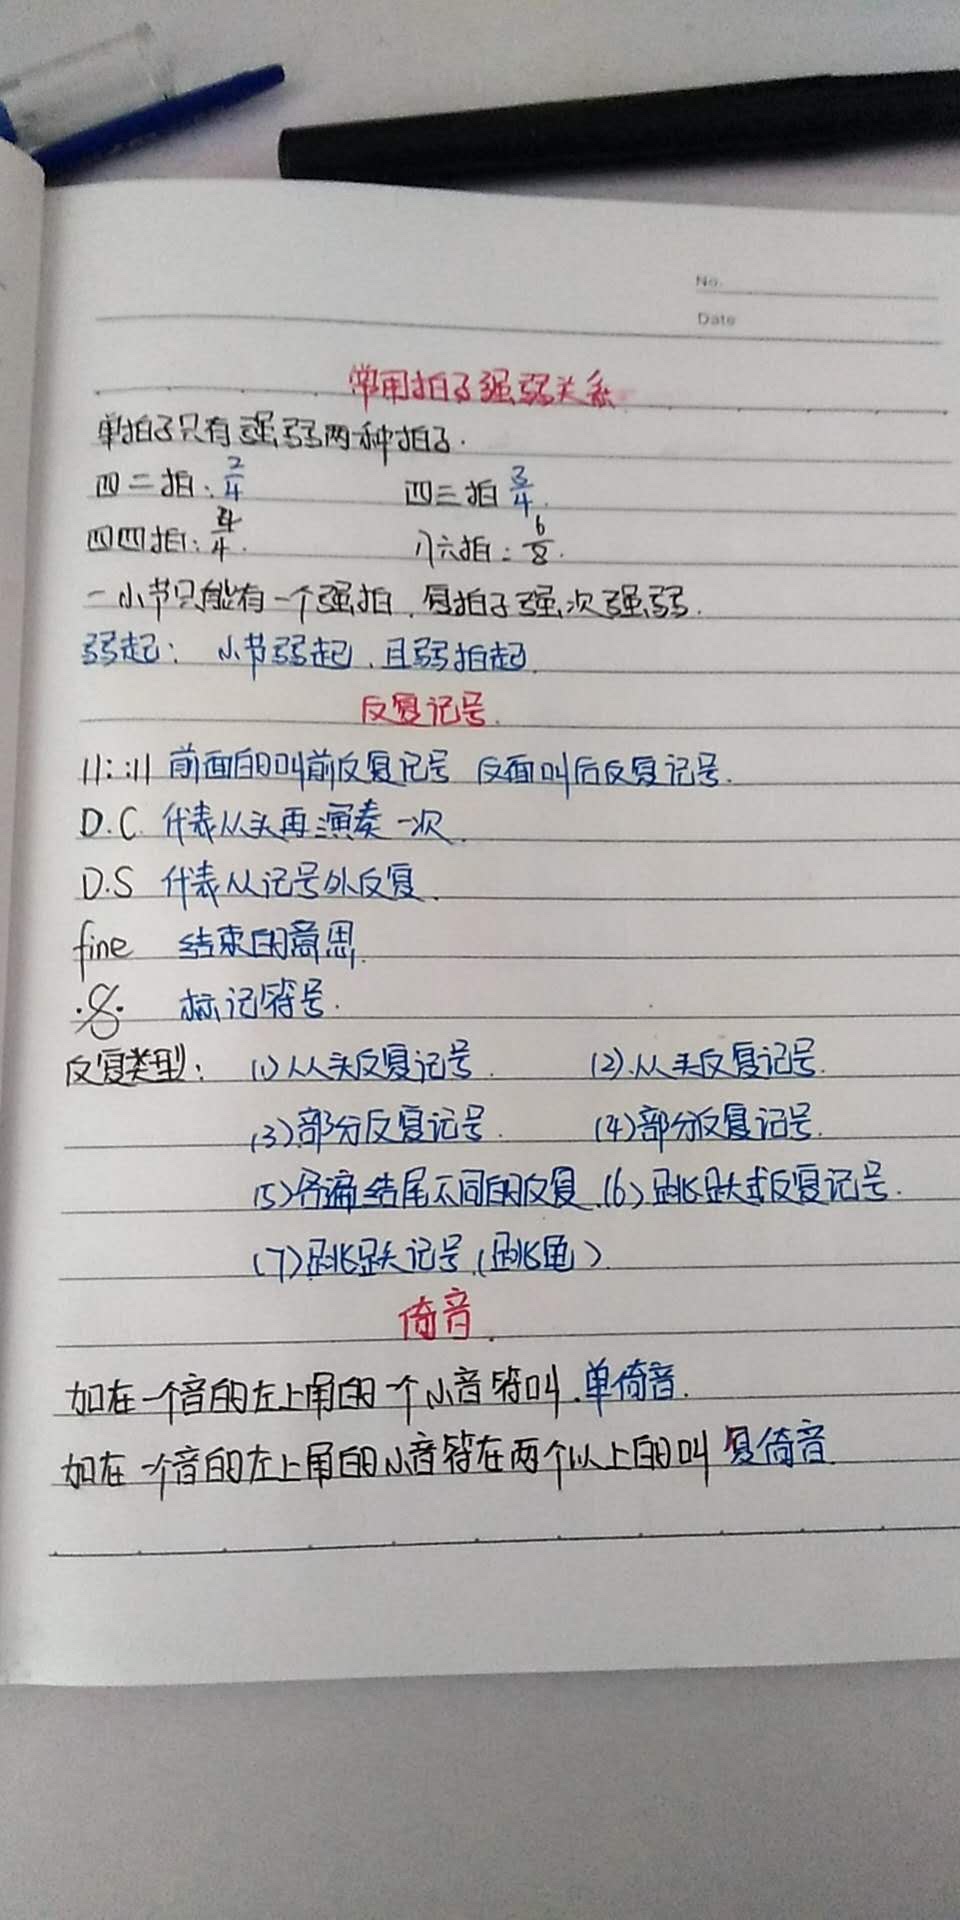 No.
Date
常用拍子强弱关系
单拍子只有强弱两种拍子.
四二拍: 2/4 四三拍 3/4.
四四拍: 4/4. 八六拍: 6/8.
一小节只能有一个强拍.复拍子强次强弱.
弱起: 小节弱起.且弱拍起.
反复记号.
||: :|| 前面的叫前反复记号 反面叫后反复记号.
D.C. 代表从头再演奏一次.
D.S 代表从记号外反复.
fine 结束的意思.
𝄋 标记符号.
反复类型: (1)从头反复记号. (2).从头反复记号.
(3)部分反复记号. (4)部分反复记号.
(5)各遍结尾不同的反复.(6)跳跃式反复记号.
(7)跳跃记号.(跳龟).
倚音.
加在一个音的左上角的一个小音符叫.单倚音.
加在一个音的左上角的小音符在两个以上的叫 复倚音.